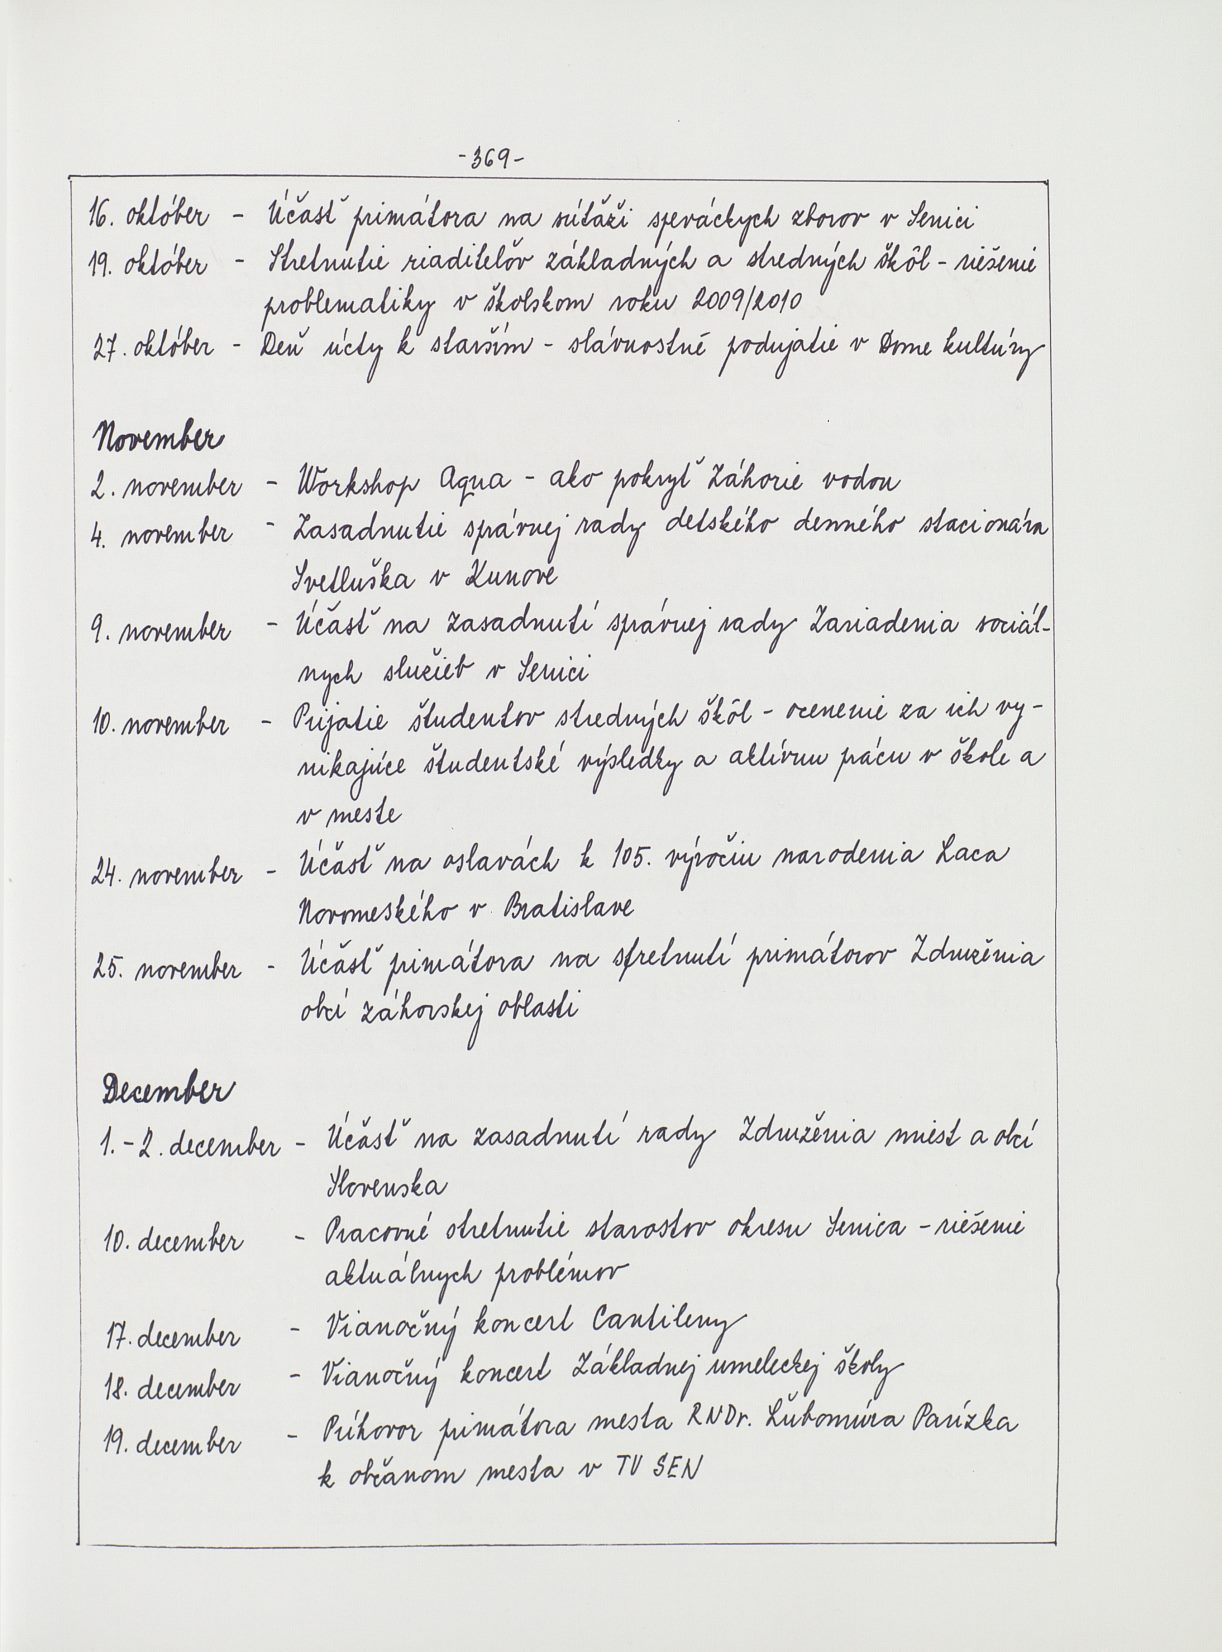 -369-
16. október - Účasť primátora na súťaži speváckych zborov v Senici
19. október - Stretnutie riaditeľov základných a stredných škôl - riešenie
problematiky v školskom roku 2009/2010
27. október - Deň úcty k starším - slávnostné podujatie v Dome kultúry
November
2. november - Workshop Aqua - ako pokryť Záhorie vodou
4. november - Zasadnutie správnej rady detského denného stacionára
Svetluška v Kunove
9. november - Účasť na zasadnutí správnej rady Zariadenia sociál-
nych služieb v Senici
10. november - Prijatie študentov stredných škôl - ocenenie za ich vy-
nikajúce študentské výsledky a aktívnu prácu v škole a
v meste
24. november - Účasť na oslavách k 105. výročiu narodenia Laca
Novomeského v Bratislave
25. november - Účasť primátora na stretnutí primátorov Združenia
obcí záhorskej oblasti
December
1. - 2. december - Účasť na zasadnutí rady Združenia miest a obcí
Slovenska
10. december - Pracovné stretnutie starostov okresu Senica - riešenie
aktuálnych problémov
17. december - Vianočný koncert Cantileny
18. december - Vianočný koncert Základnej umeleckej školy
19. december - Príhovor primátora mesta RNDr. Ľubomíra Parízka
k občanom mesta v TV SEN